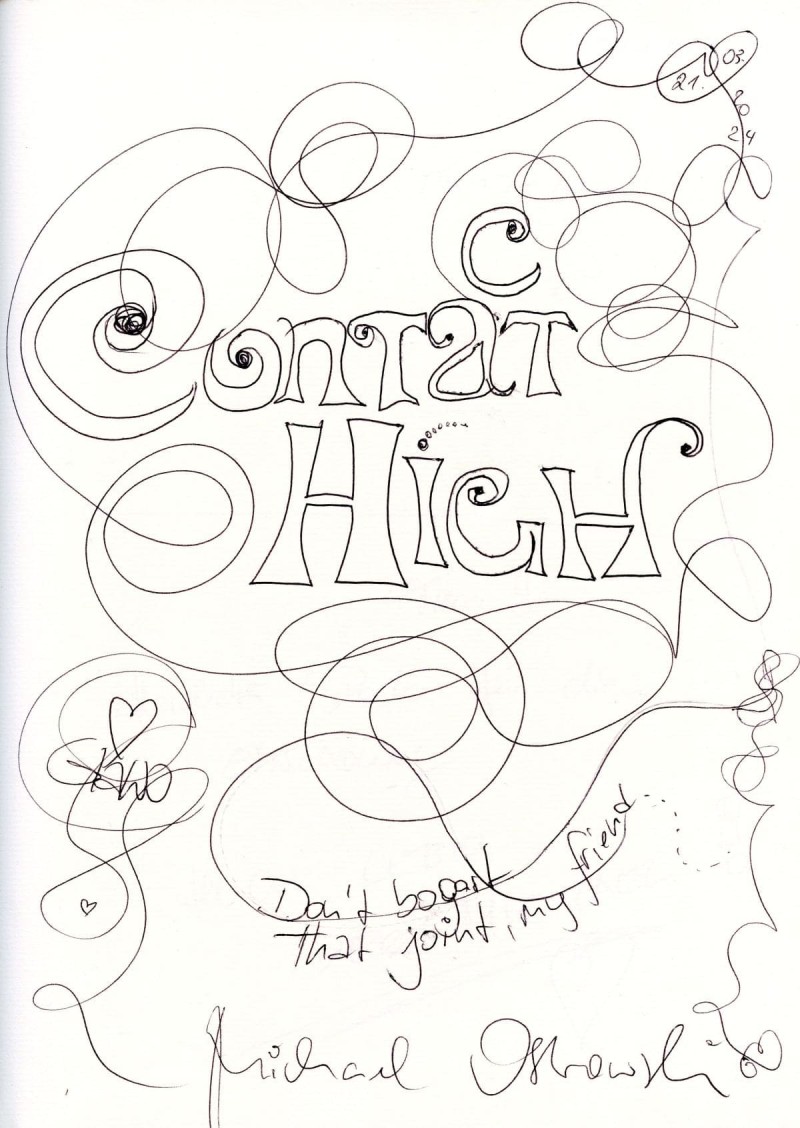 21. 03.
20
24
C
Contat
High
Don't bogart
That joint, my friend
Michael Ostrowski